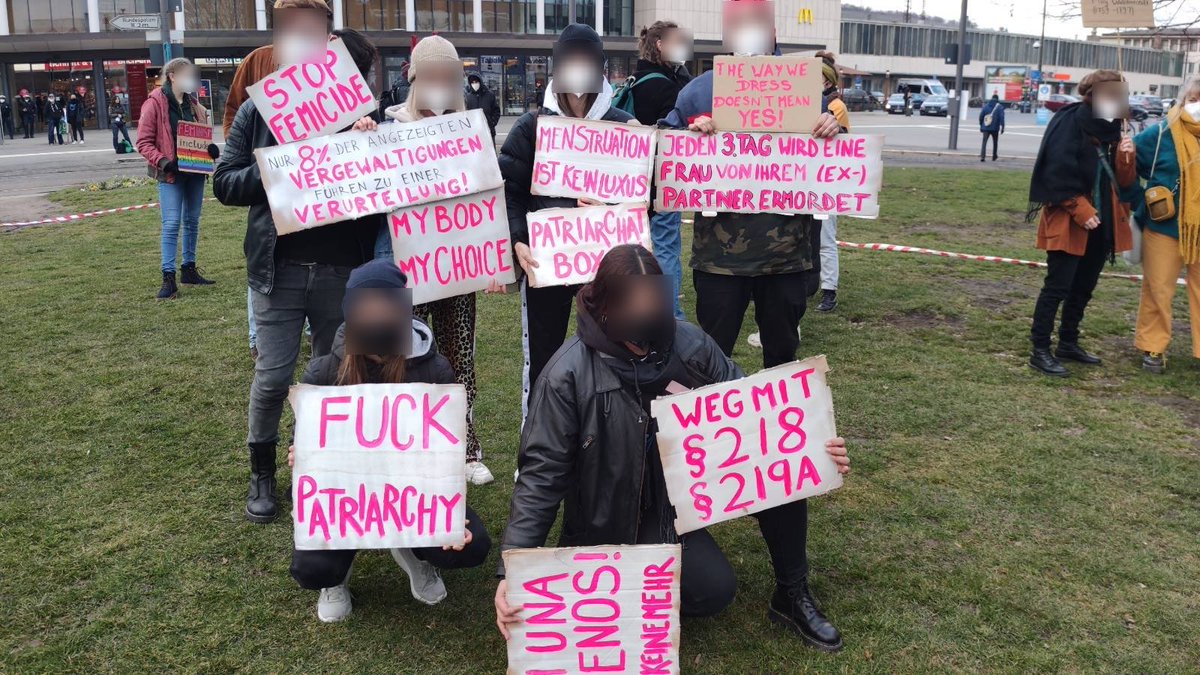 STOP
FEMICIDE
NUR 8% DER ANGEZEIGTEN
VERGEWALTIGUNGEN
FÜHREN ZU EINER
VERURTEILUNG!
MY BODY
MY CHOICE
MENSTRUATION
IST KEIN LUXUS
PATRIARCHAT
BOY
THE WAY WE
DRESS
DOESN'T MEAN
YES!
JEDEN 3. TAG WIRD EINE
FRAU VON IHREM (EX-)
PARTNER ERMORDET
FUCK
PATRIARCHY
WEG MIT
§218
§219A
UNA
ENOS!
KEINE MEHR